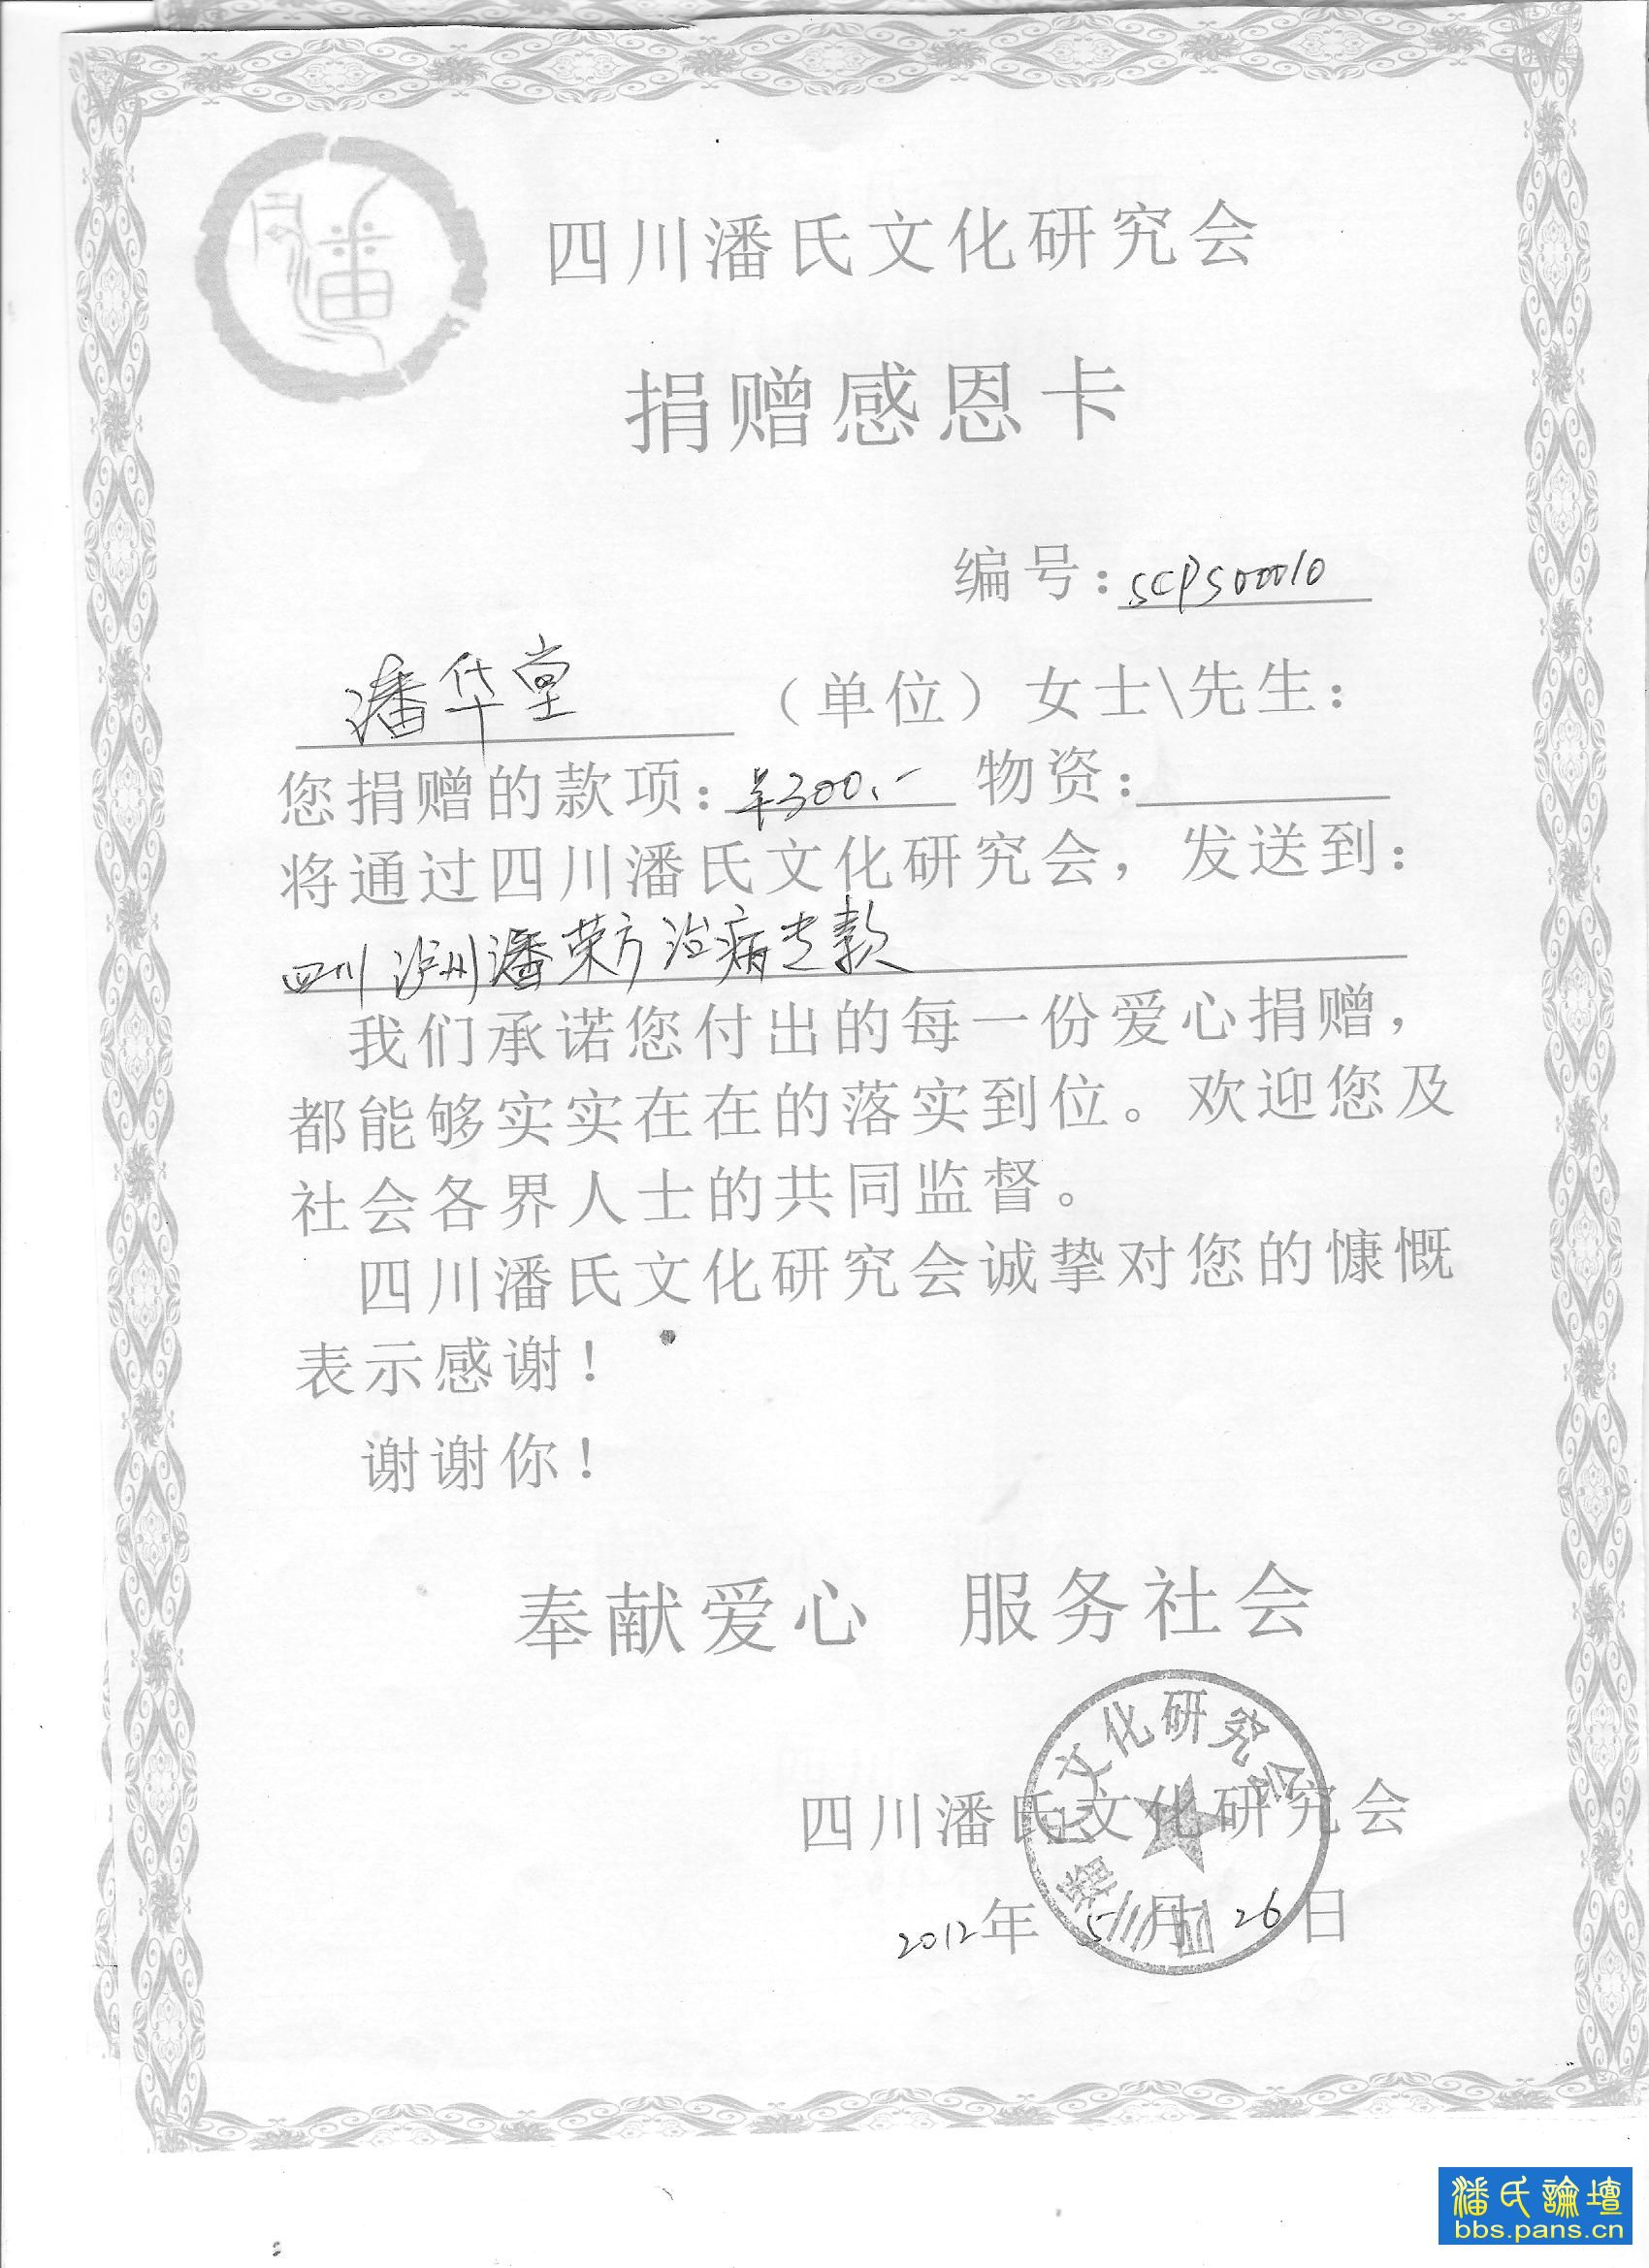 四川潘氏文化研究会
捐赠感恩卡
编号：SCPS00010
潘华堂（单位）女士\先生：
您捐赠的款项：￥300.- 物资：
将通过四川潘氏文化研究会，发送到：
四川泸州潘荣方治病专款
我们承诺您付出的每一份爱心捐赠，
都能够实实在在的落实到位。欢迎您及
社会各界人士的共同监督。
四川潘氏文化研究会诚挚对您的慷慨
表示感谢！
谢谢你！
奉献爱心 服务社会
四川潘氏文化研究会
四川潘氏文化研究会
2012年5月26日
潘氏論壇
bbs.pans.cn